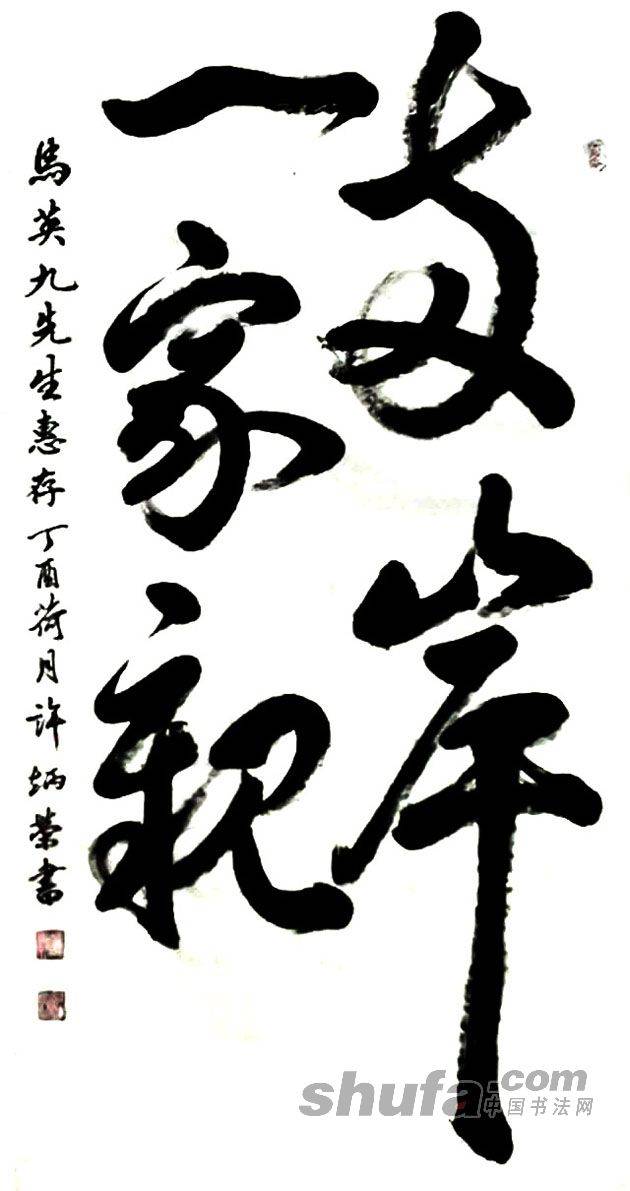 两岸
一家亲
馬英九先生惠存丁酉荷月许炳荣書
shufa.com
中国书法网